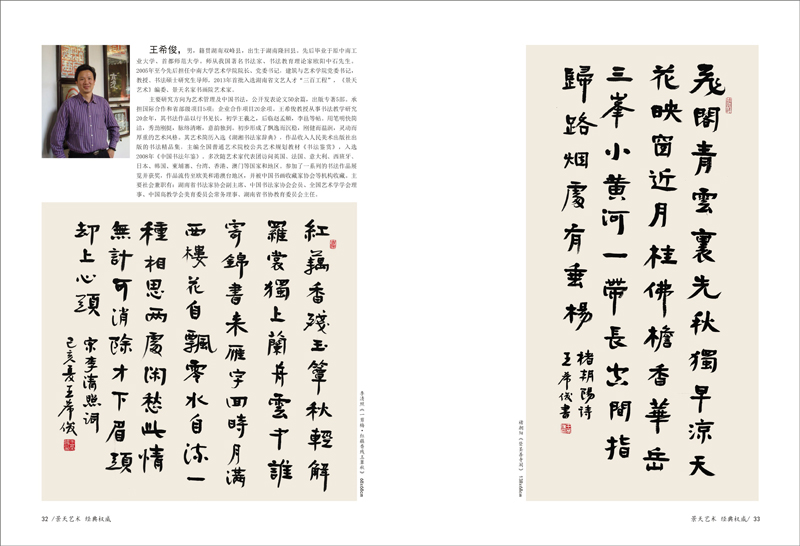 王希俊，男，籍贯湖南双峰县，出生于湖南隆回县，先后毕业于原中南工
业大学、首都师范大学，师从我国著名书法家、书法教育理论家欧阳中石先生。
2005年至今先后担任中南大学艺术学院院长、党委书记，建筑与艺术学院党委书记，
教授、书法硕士研究生导师，2013年首批入选湖南省文艺人才“三百工程”，《景天
艺术》编委、景天名家书画院艺术家。
主要研究方向为艺术管理及中国书法，公开发表论文50余篇，出版专著5部，承
担国际合作和省部级项目5项，企业合作项目20余项。王希俊教授从事书法教学研究
20余年，其书法作品以行书见长，初学王羲之，后临赵孟頫、李邕等帖，用笔明快简
洁，秀劲刚挺，脉络清晰；意韵脱俗，初步形成了飘逸而沉稳，刚健而温润，灵动而
厚重的艺术风格。其艺术简历入选《湖湘书法家辞典》，作品收入人民美术出版社出
版的书法精品集。主编全国普通艺术院校公共艺术规划教材《书法鉴赏》，入选
2008年《中国书法年鉴》。多次随艺术家代表团访问英国、法国、意大利、西班牙、
日本、韩国、柬埔寨、台湾、香港、澳门等国家和地区，参加了一系列的书法作品展
览并获奖，作品流传至欧美和港澳台地区，并被中国书画收藏家协会等机构收藏。主
要社会兼职有：湖南省书法家协会副主席，中国书法家协会会员、全国艺术学学会理
事、中国高教学会美育委员会常务理事、湖南省书协教育委员会主任。
紅藕香殘玉簟秋輕解
羅裳獨上蘭舟雲中誰
寄錦書来雁字回時月滿
西樓花自飄零水自流一
種相思两處闲愁此情
無計可消除才下眉頭
却上心頭
宋李清照詞
己亥夏王希俊
李清照《一剪梅·红藕香残玉簟秋》68x68cm
32 /景天艺术 经典权威
飛閣青雲裏先秋獨早涼天
花映窗近月桂佛檐香華岳
三峯小黄河一帶長空間指
歸路烟處有垂楊
楮朝陽詩
王希俊書
138x68cm
景天艺术 经典权威/ 33